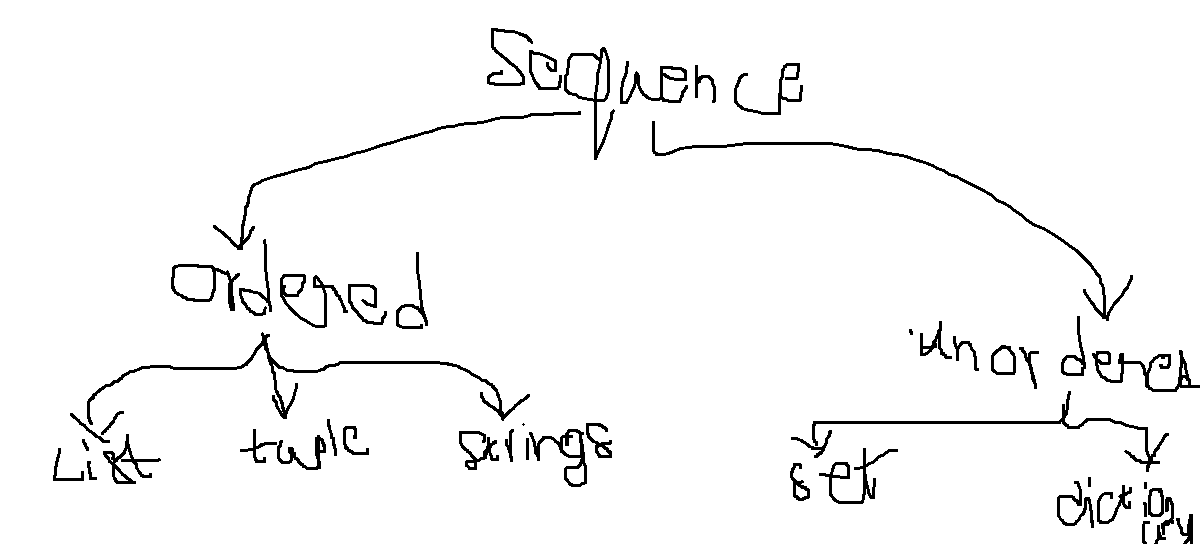 Sequence
ordered
unordered
List tuple strings
set dictionary